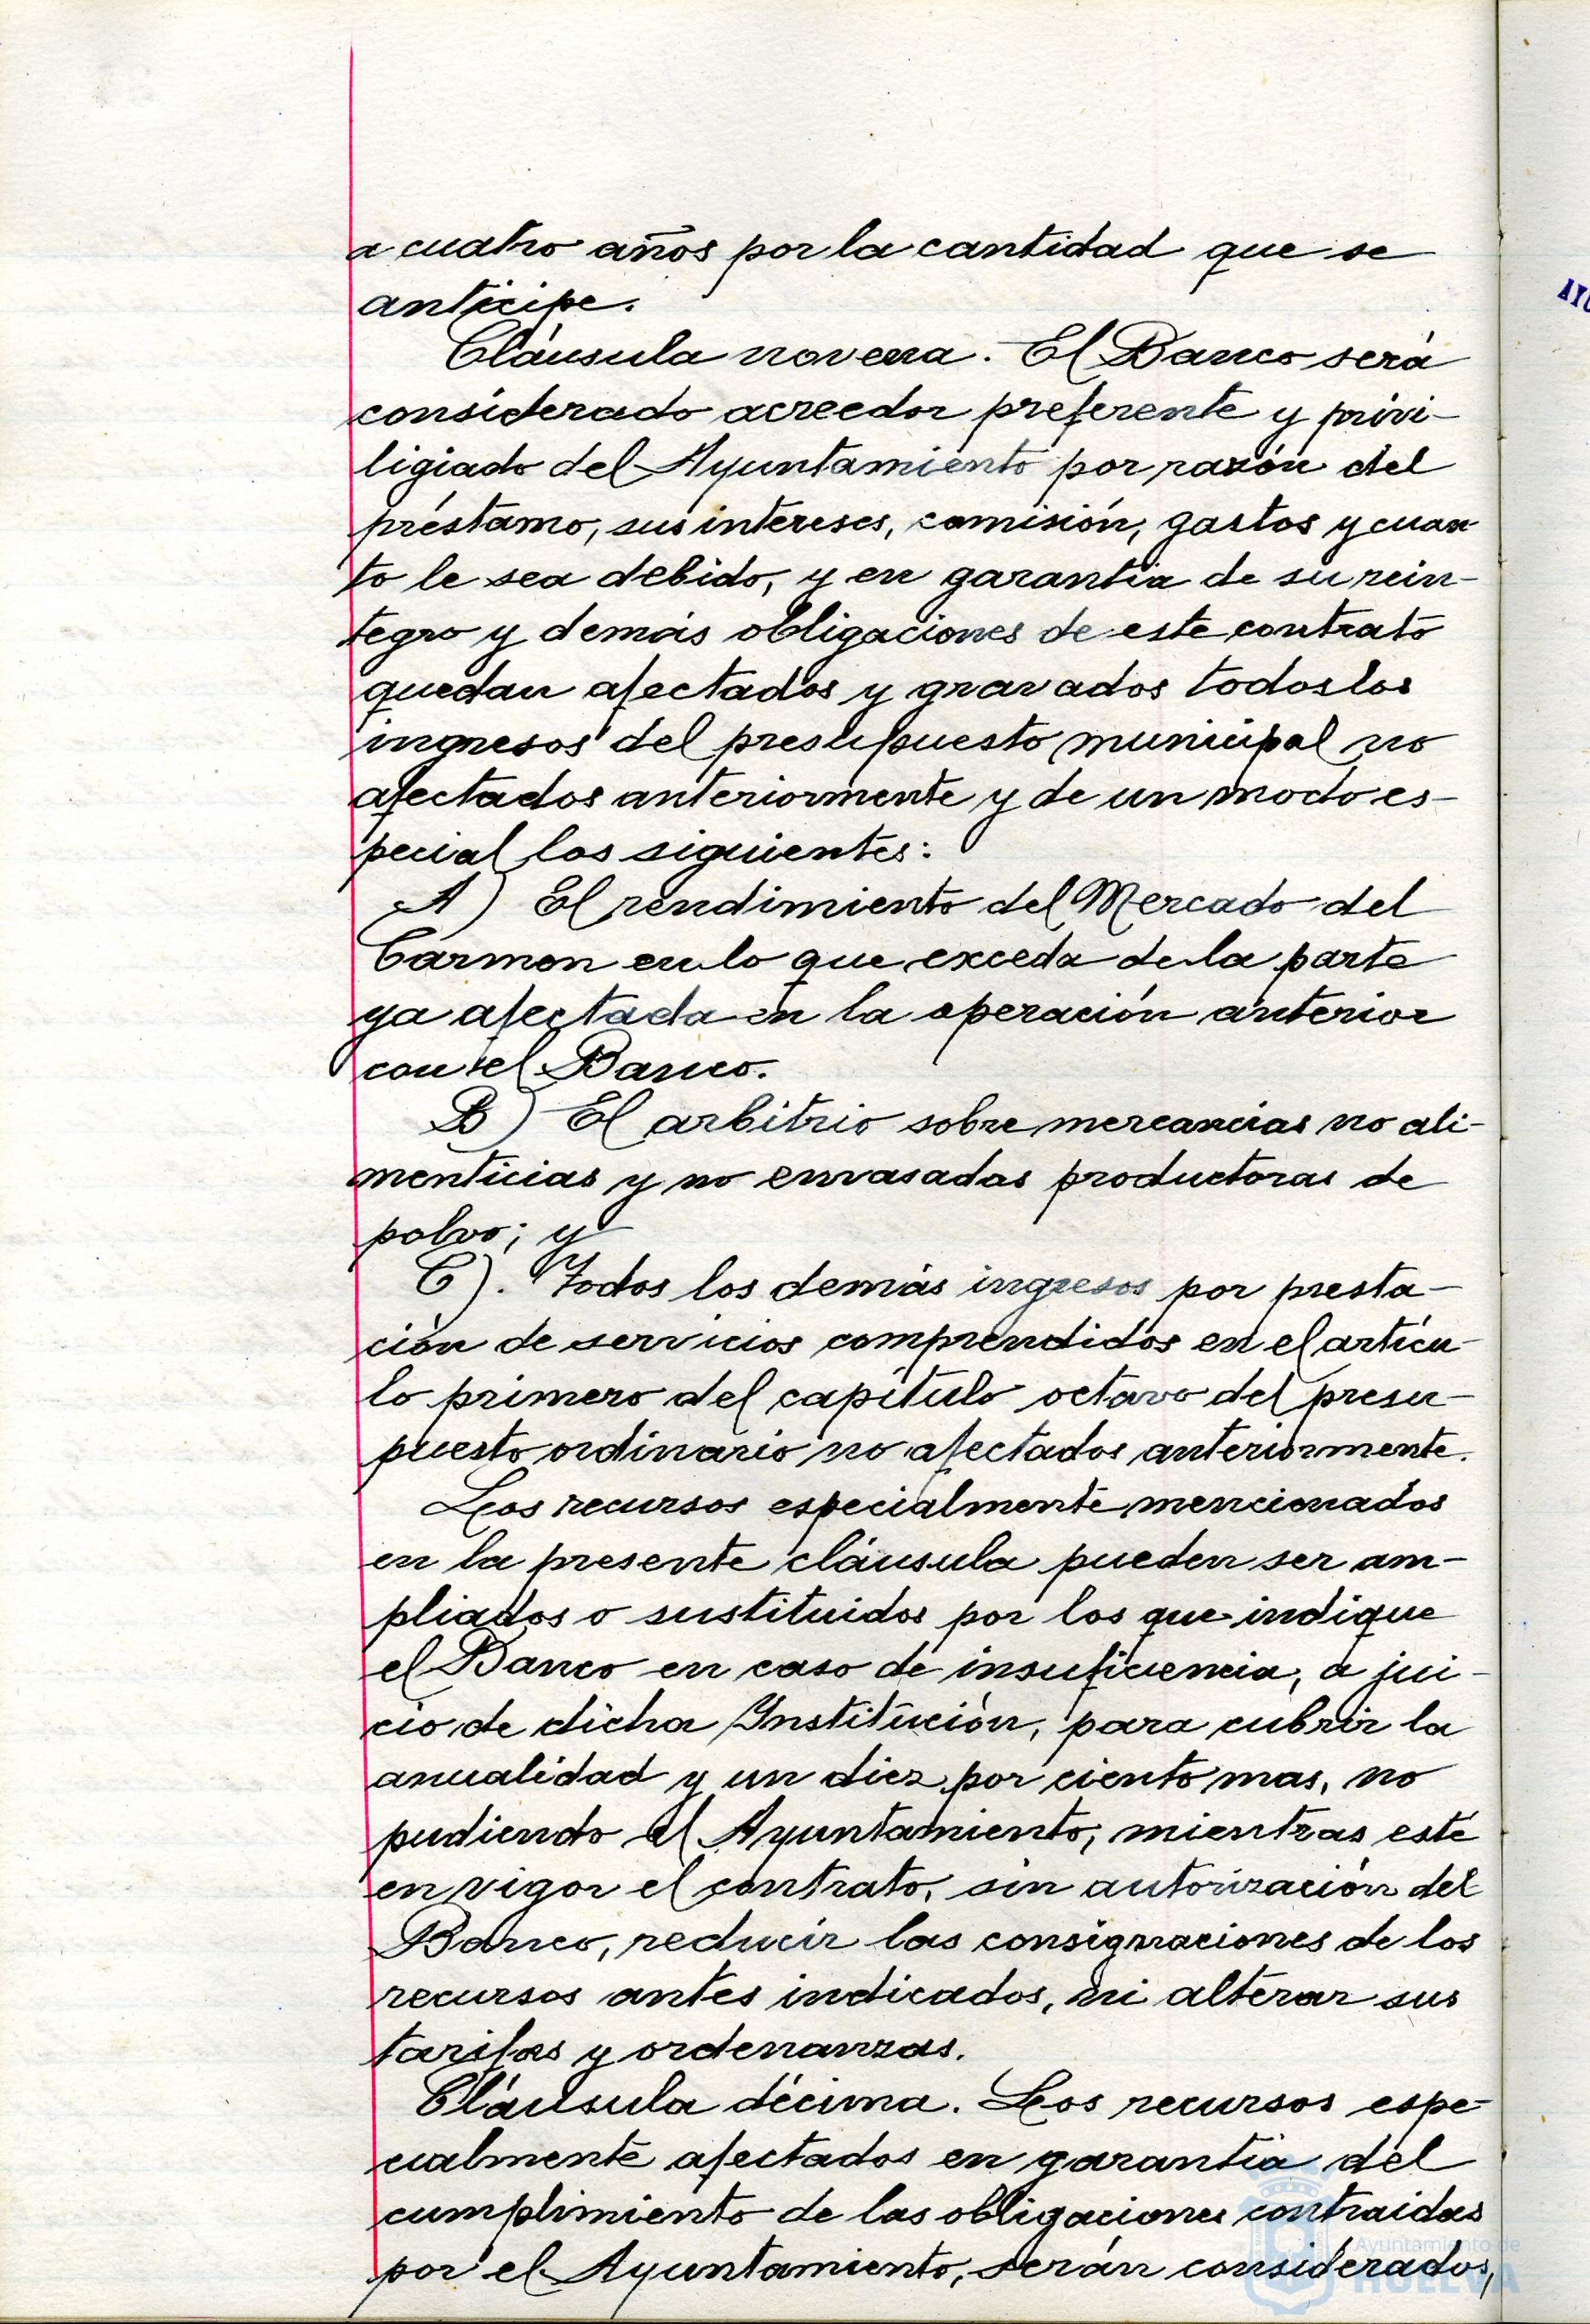 a cuatro años por la cantidad que se
anticipe.
Cláusula novena. El Banco será
considerado acreedor preferente y privi-
ligiado del Ayuntamiento por razón del
préstamo, sus intereses, comisión, gastos y cuan
to le sea debido, y en garantía de su rein-
tegro y demás obligaciones de este contrato
quedan afectados y gravados todos los
ingresos del presupuesto municipal no
afectados anteriormente y de un modo es-
pecial los siguientes:
A) El rendimiento del Mercado del
Carmen en lo que exceda de la parte
ya afectada en la operación anterior
con el Banco.
B) El arbitrio sobre mercancías no ali-
menticias y no envasadas productoras de
polvo; y
C). Todos los demás ingresos por presta-
ción de servicios comprendidos en el artícu-
lo primero del capítulo octavo del presu-
puesto ordinario no afectados anteriormente.
Los recursos especialmente mencionados
en la presente cláusula pueden ser am-
pliados o sustituidos por los que indique
el Banco en caso de insuficiencia, a jui-
cio de dicha Institución, para cubrir la
anualidad y un diez por ciento mas, no
pudiendo el Ayuntamiento, mientras esté
en vigor el contrato, sin autorización del
Banco, reducir las consignaciones de los
recursos antes indicados, ni alterar sus
tarifas y ordenanzas.
Cláusula décima. Los recursos espe-
cialmente afectados en garantía del
cumplimiento de las obligaciones contraidas
por el Ayuntamiento, serán considerados,
Ayuntamiento de
HUELVA